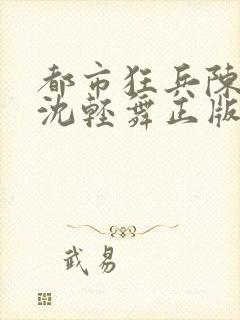 都市狂兵陳
沈輕舞正版
武易